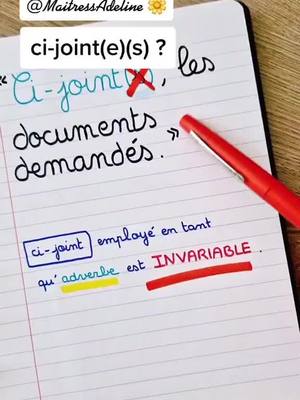 @MaitressAdeline 🌼
ci-joint(e)(s) ?
« Ci-joint(s), les
documents
demandés. »
ci-joint employé en tant
qu'adverbe est INVARIABLE.